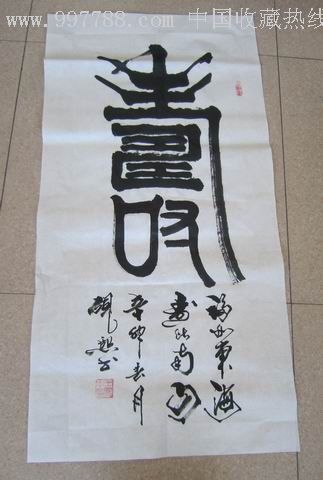 www.997788.com 中国收藏热线
壽
福如東海
壽比南山
辛卯春月